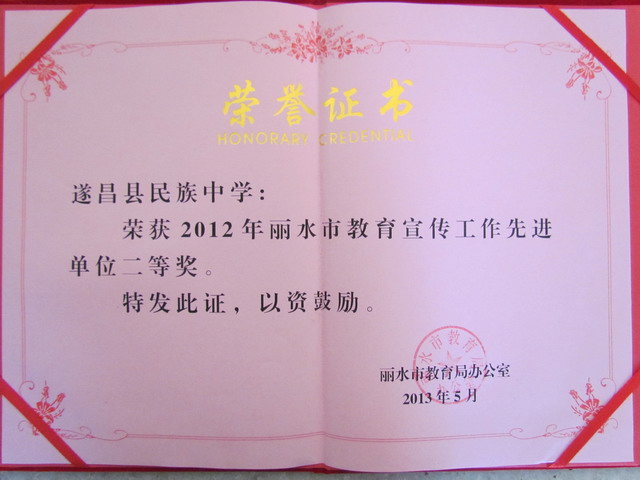 荣誉证书
HONORARY CREDENTIAL
遂昌县民族中学：
荣获2012年丽水市教育宣传工作先进
单位二等奖。
特发此证，以资鼓励。
丽水市教育局办公室
2013年5月